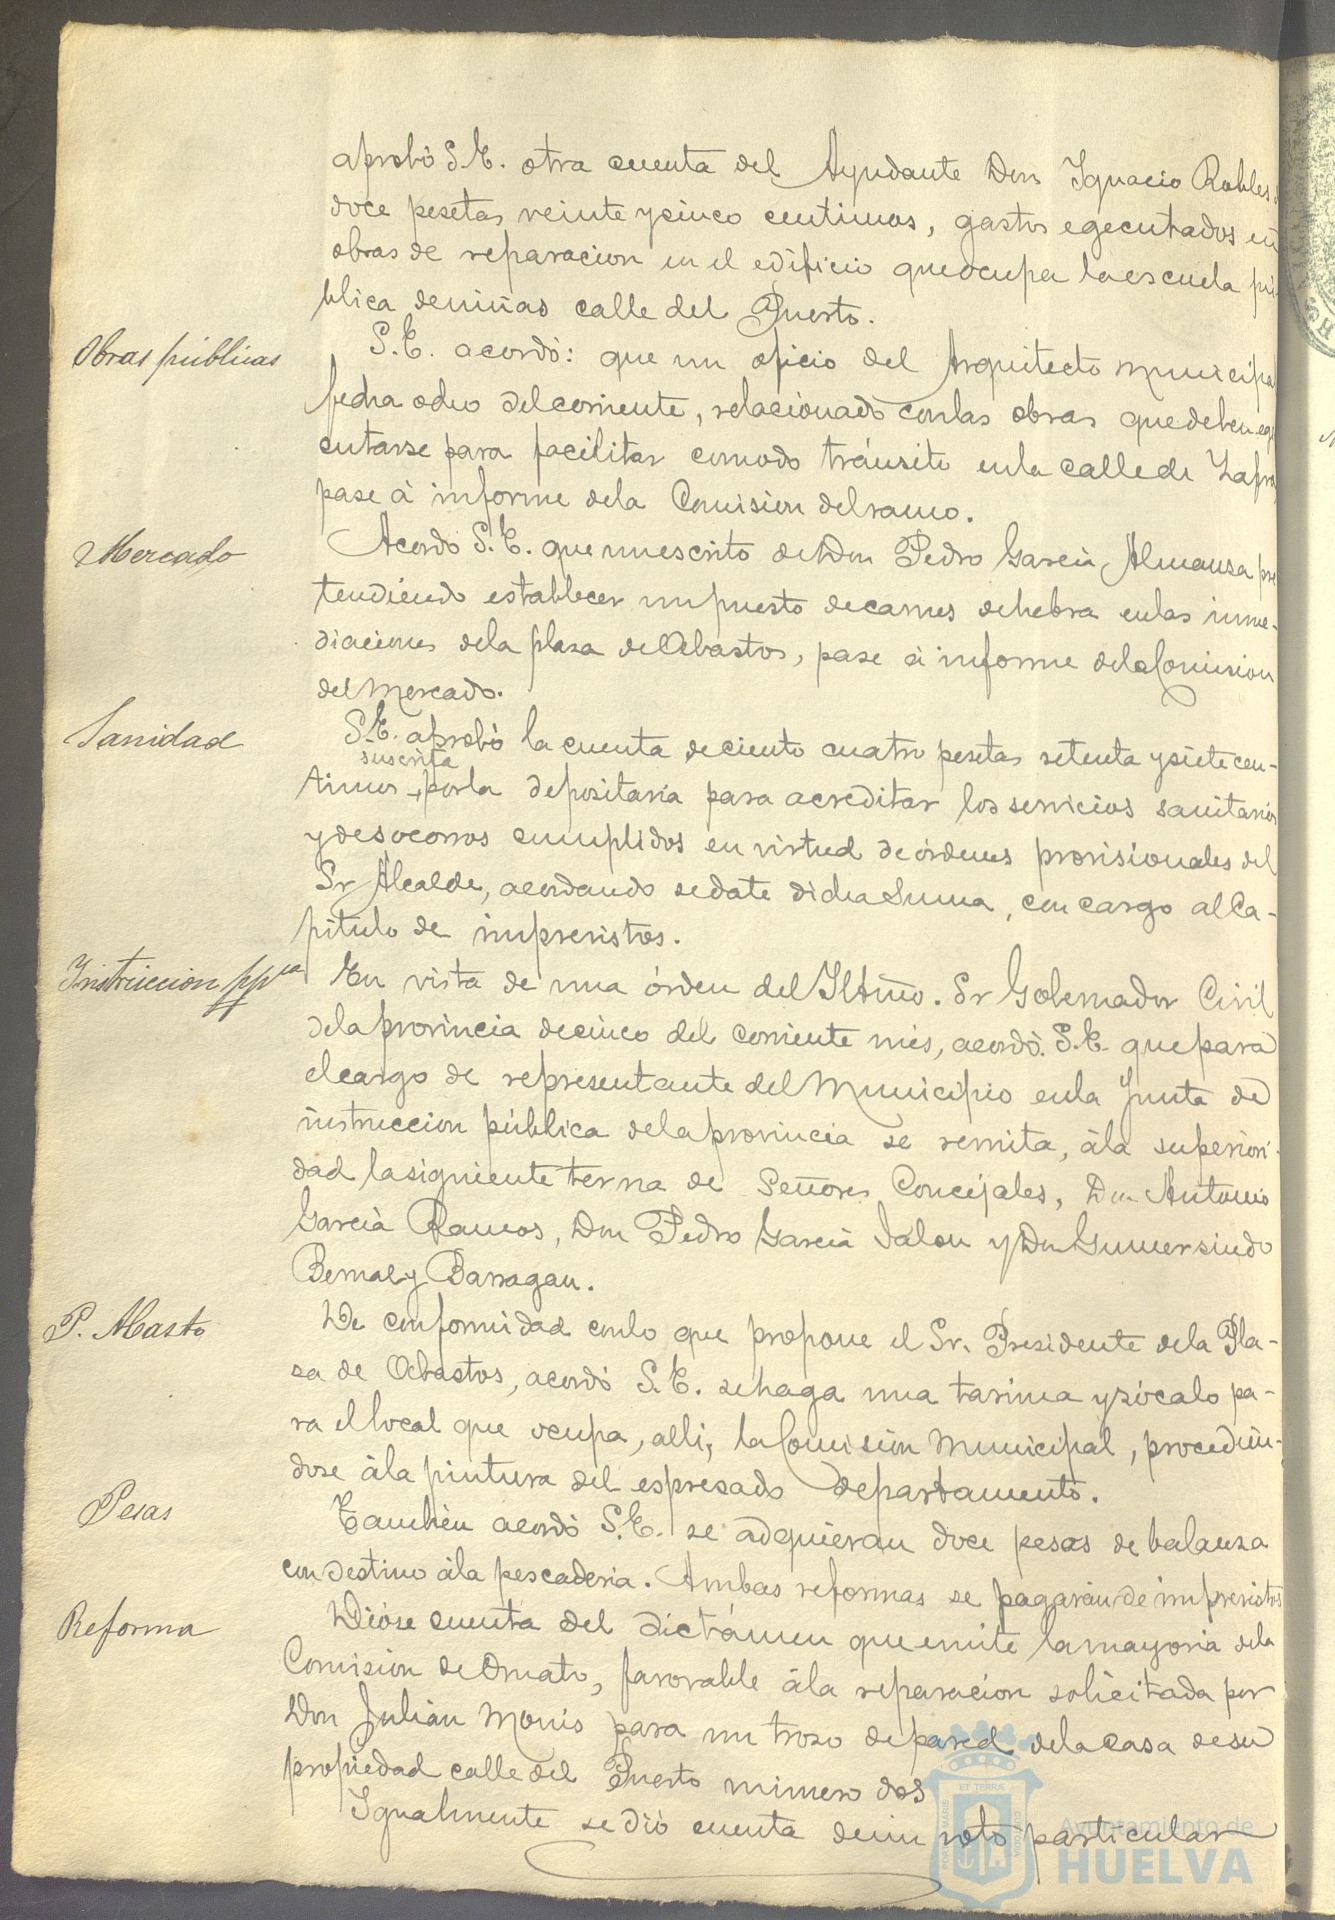 aprobó S.E. otra cuenta del Ayudante Don Ignacio Robles,
doce pesetas veinte y cinco centimos, gastos egecutados en
obras de reparacion en el edificio que ocupa la escuela pú-
blica de niñas calle del Puerto.
Obras públicas
S.E. acordó: que un oficio del Arquitecto municipal
fecha ocho del corriente, relacionado con las obras que deben ege
cutarse para facilitar comodo tránsito en la calle de Zafra,
pase á informe de la Comision del ramo.
Mercado
Acordó S.E. que un escrito de Don Pedro Garcia Almansa pre
tendiendo establecer un puesto de carnes de hebra en las inme-
diaciones de la plaza de Abastos, pase á informe de la Comision
del Mercado.
Sanidad
S.E. aprobó la cuenta de ciento cuatro pesetas setenta y siete cen-
suscrita
timos por la depositaria para acreditar los servicios sanitarios
y de socorros cumplidos en virtud de órdenes provisionales del
Sr Alcalde, acordando se date dicha suma, con cargo al Ca-
pitulo de imprevistos.
Instruccion ppca
En vista de una órden del Iltmo. Sr Gobernador Civil
de la provincia de cinco del corriente mes, acordó S.E. que para
el cargo de representante del Municipio en la Junta de
instruccion pública de la provincia se remita, á la superiori-
dad la siguiente terna de Señores Concejales, Don Antonio
Garcia Ramos, Don Pedro Garcia Jalon y Don Gumersindo
Bernal y Barragan.
P. Abasto
De conformidad con lo que propone el Sr. Presidente de la Pla-
za de Abastos, acordó S.E. se haga una tarima y zócalo pa-
ra el local que ocupa, alli, la Comision Municipal, procedién-
dose á la pintura del espresado departamento.
Pesas
Tambien acordó S.E. se adquieran doce pesas de balanza
con destino á la pescaderia. Ambas reformas se pagarán de imprevistos
Reforma
Dióse cuenta del dictámen que emite la mayoria de la
Comision de Ornato, favorable á la reparacion solicitada por
Don Julián Monis para un trozo de pared de la casa de su
propiedad calle del Puerto número dos
Igualmente se dió cuenta de un voto particular
PORTUS MARIS ET TERRÆ CUSTODIA
Ayuntamiento de
HUELVA